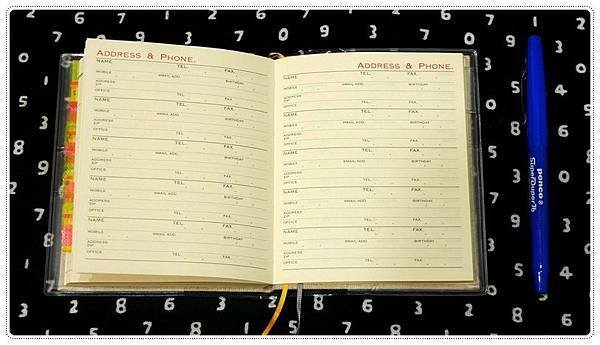 ADDRESS & PHONE.
NAME TEL. FAX.
MOBILE EMAIL ADD. BIRTHDAY
ADDRESS
ZIP
OFFICE TEL. FAX.
NAME
MOBILE EMAIL ADD. BIRTHDAY
ADDRESS
ZIP
OFFICE TEL. FAX.
NAME
MOBILE EMAIL ADD. BIRTHDAY
ADDRESS
ZIP
OFFICE TEL. FAX.
NAME
MOBILE EMAIL ADD. BIRTHDAY
ADDRESS
ZIP
OFFICE TEL. FAX.
NAME
MOBILE EMAIL ADD. BIRTHDAY
ADDRESS
ZIP
OFFICE TEL. FAX.
ADDRESS & PHONE.
NAME TEL. FAX.
MOBILE EMAIL ADD. BIRTHDAY
ADDRESS
ZIP
OFFICE TEL. FAX.
NAME
MOBILE EMAIL ADD. BIRTHDAY
ADDRESS
ZIP
OFFICE TEL. FAX.
NAME
MOBILE EMAIL ADD. BIRTHDAY
ADDRESS
ZIP
OFFICE TEL. FAX.
NAME
MOBILE EMAIL ADD. BIRTHDAY
ADDRESS
ZIP
OFFICE TEL. FAX.
NAME
MOBILE EMAIL ADD. BIRTHDAY
ADDRESS
ZIP
OFFICE TEL. FAX.